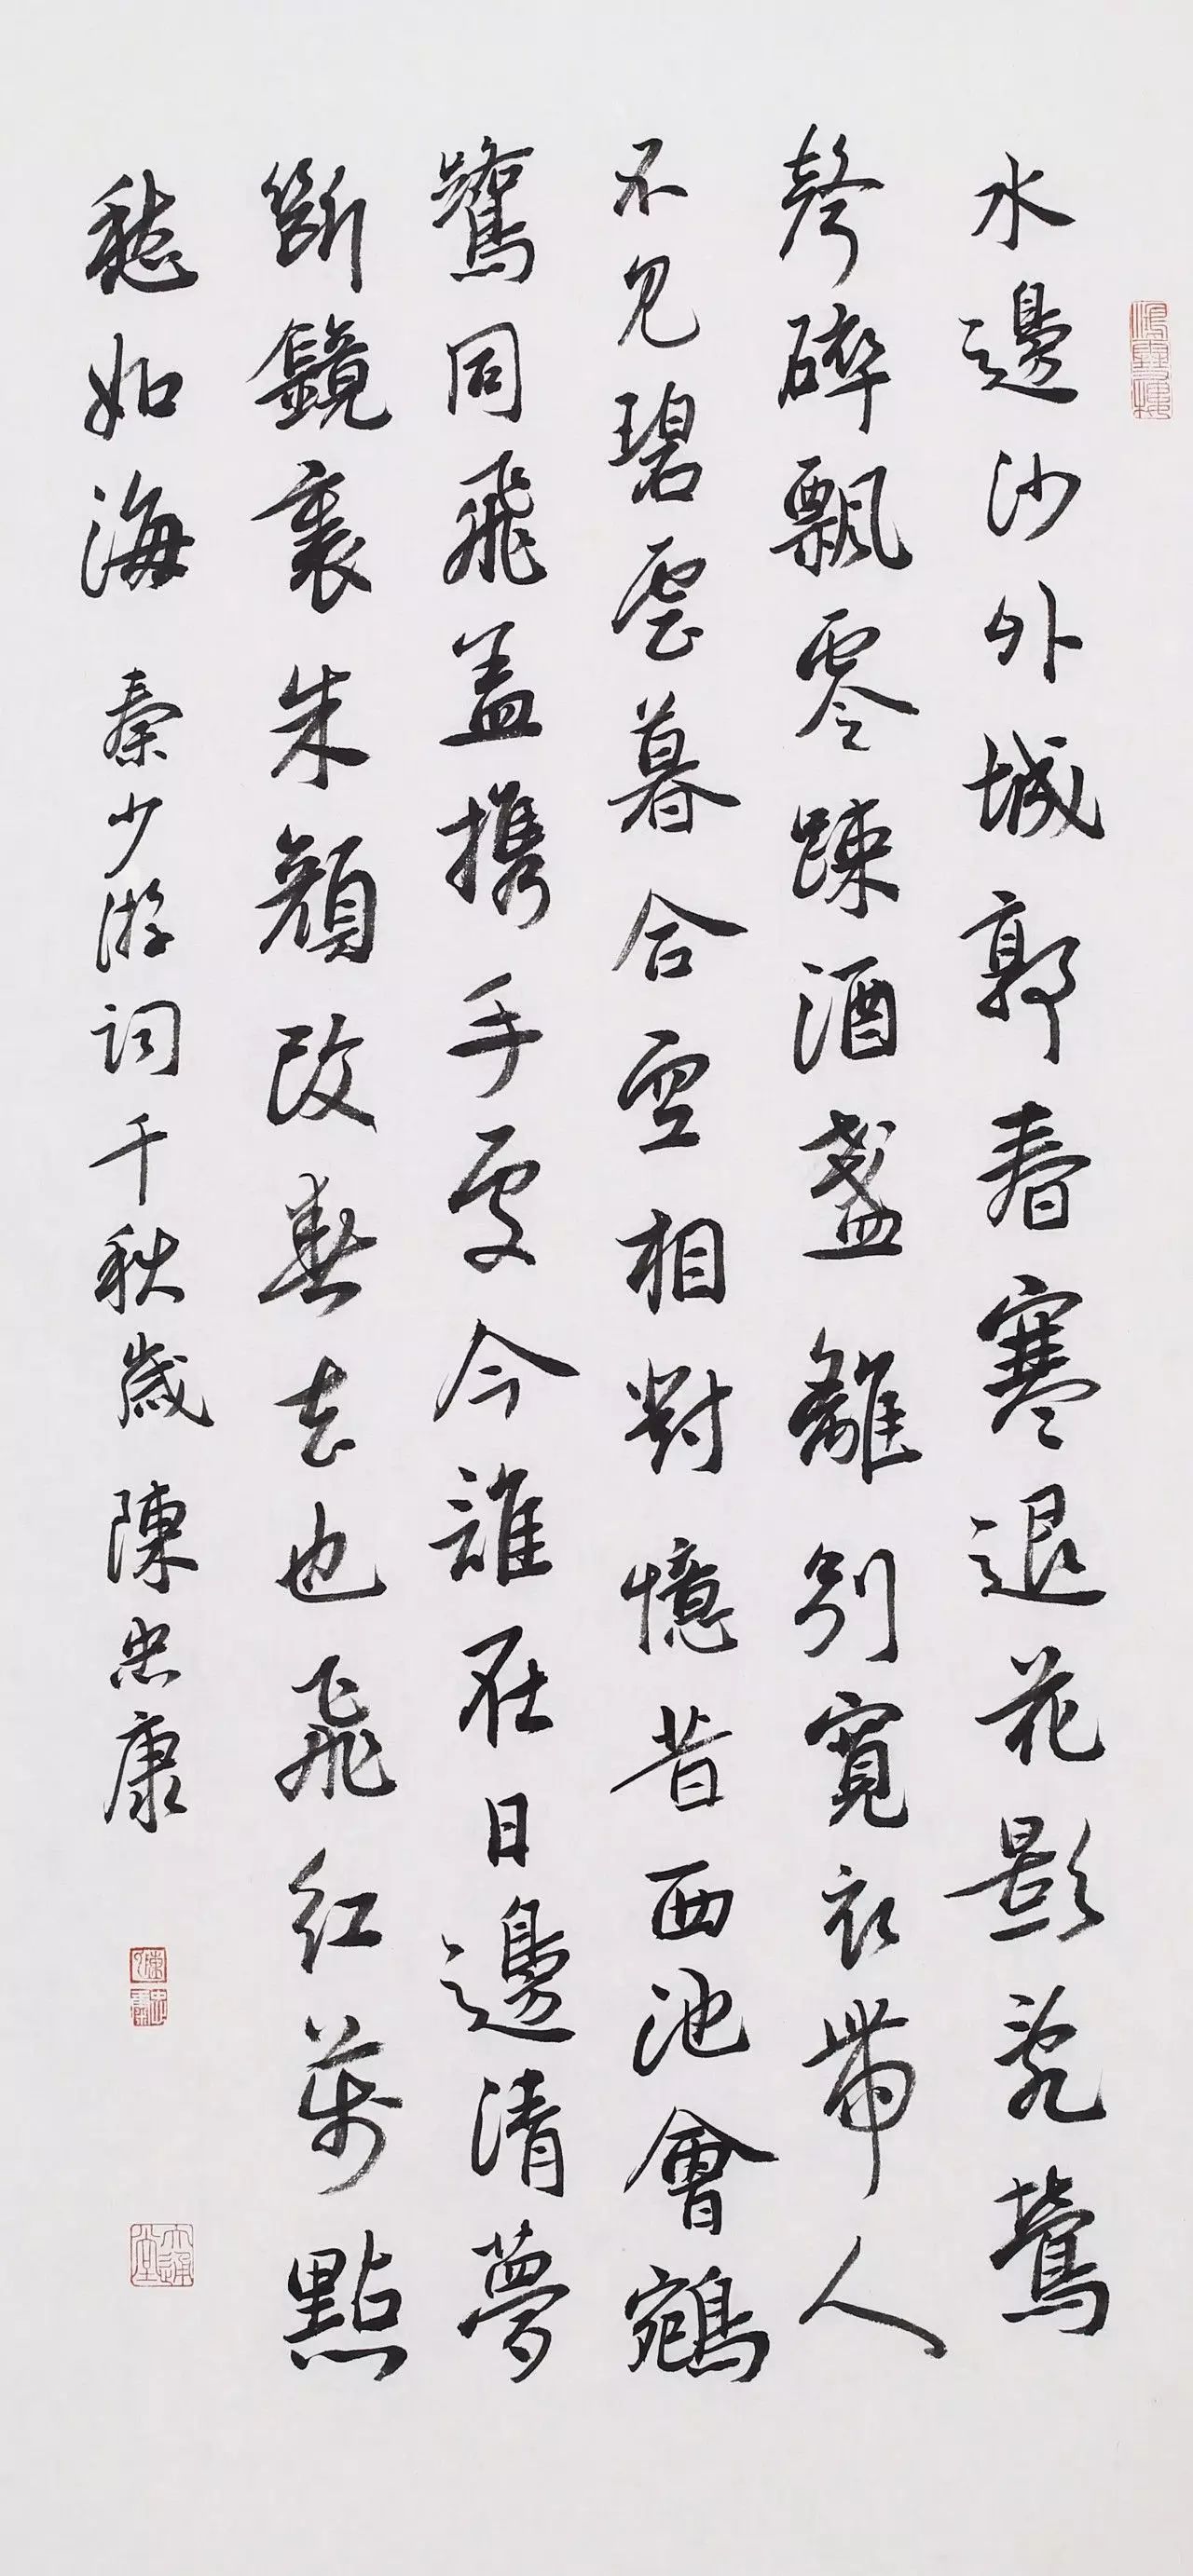 水邊沙外城郭春寒退花影亂鶯
聲碎飄零踈酒盞離別寬衣帶人
不見碧雲暮合空相對憶昔西池會鵷
鷺同飛盖携手處今誰在日邊清夢
斷鏡裏朱顏改春去也飛紅萬點
愁如海 秦少游詞千秋歲 陳忠康